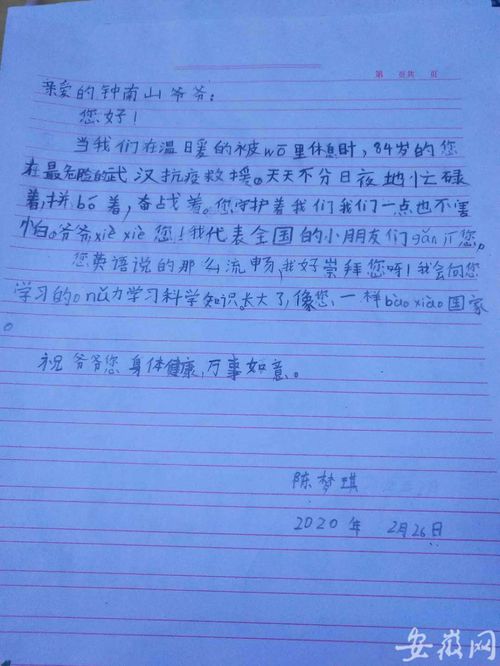 第 页共 页
亲爱的钟南山爷爷:
您好!
当我们在温暖的被wō里休息时,84岁的您
在最危险的武汉抗疫救援。天天不分日夜地忙碌
着,拼bó着,奋战着。您守护着我们我们一点也不害
怕。爷爷,xiè xiè您!我代表全国的小朋友们gǎn jī您。
您英语说的那么流畅,我好崇拜您呀!我会向您
学习的。nǔ力学习科学知识。长大了,像您一样bào xiào国家
。
祝爷爷您身体健康,万事如意。
陈梦琪
2020年 2月26日
安徽网